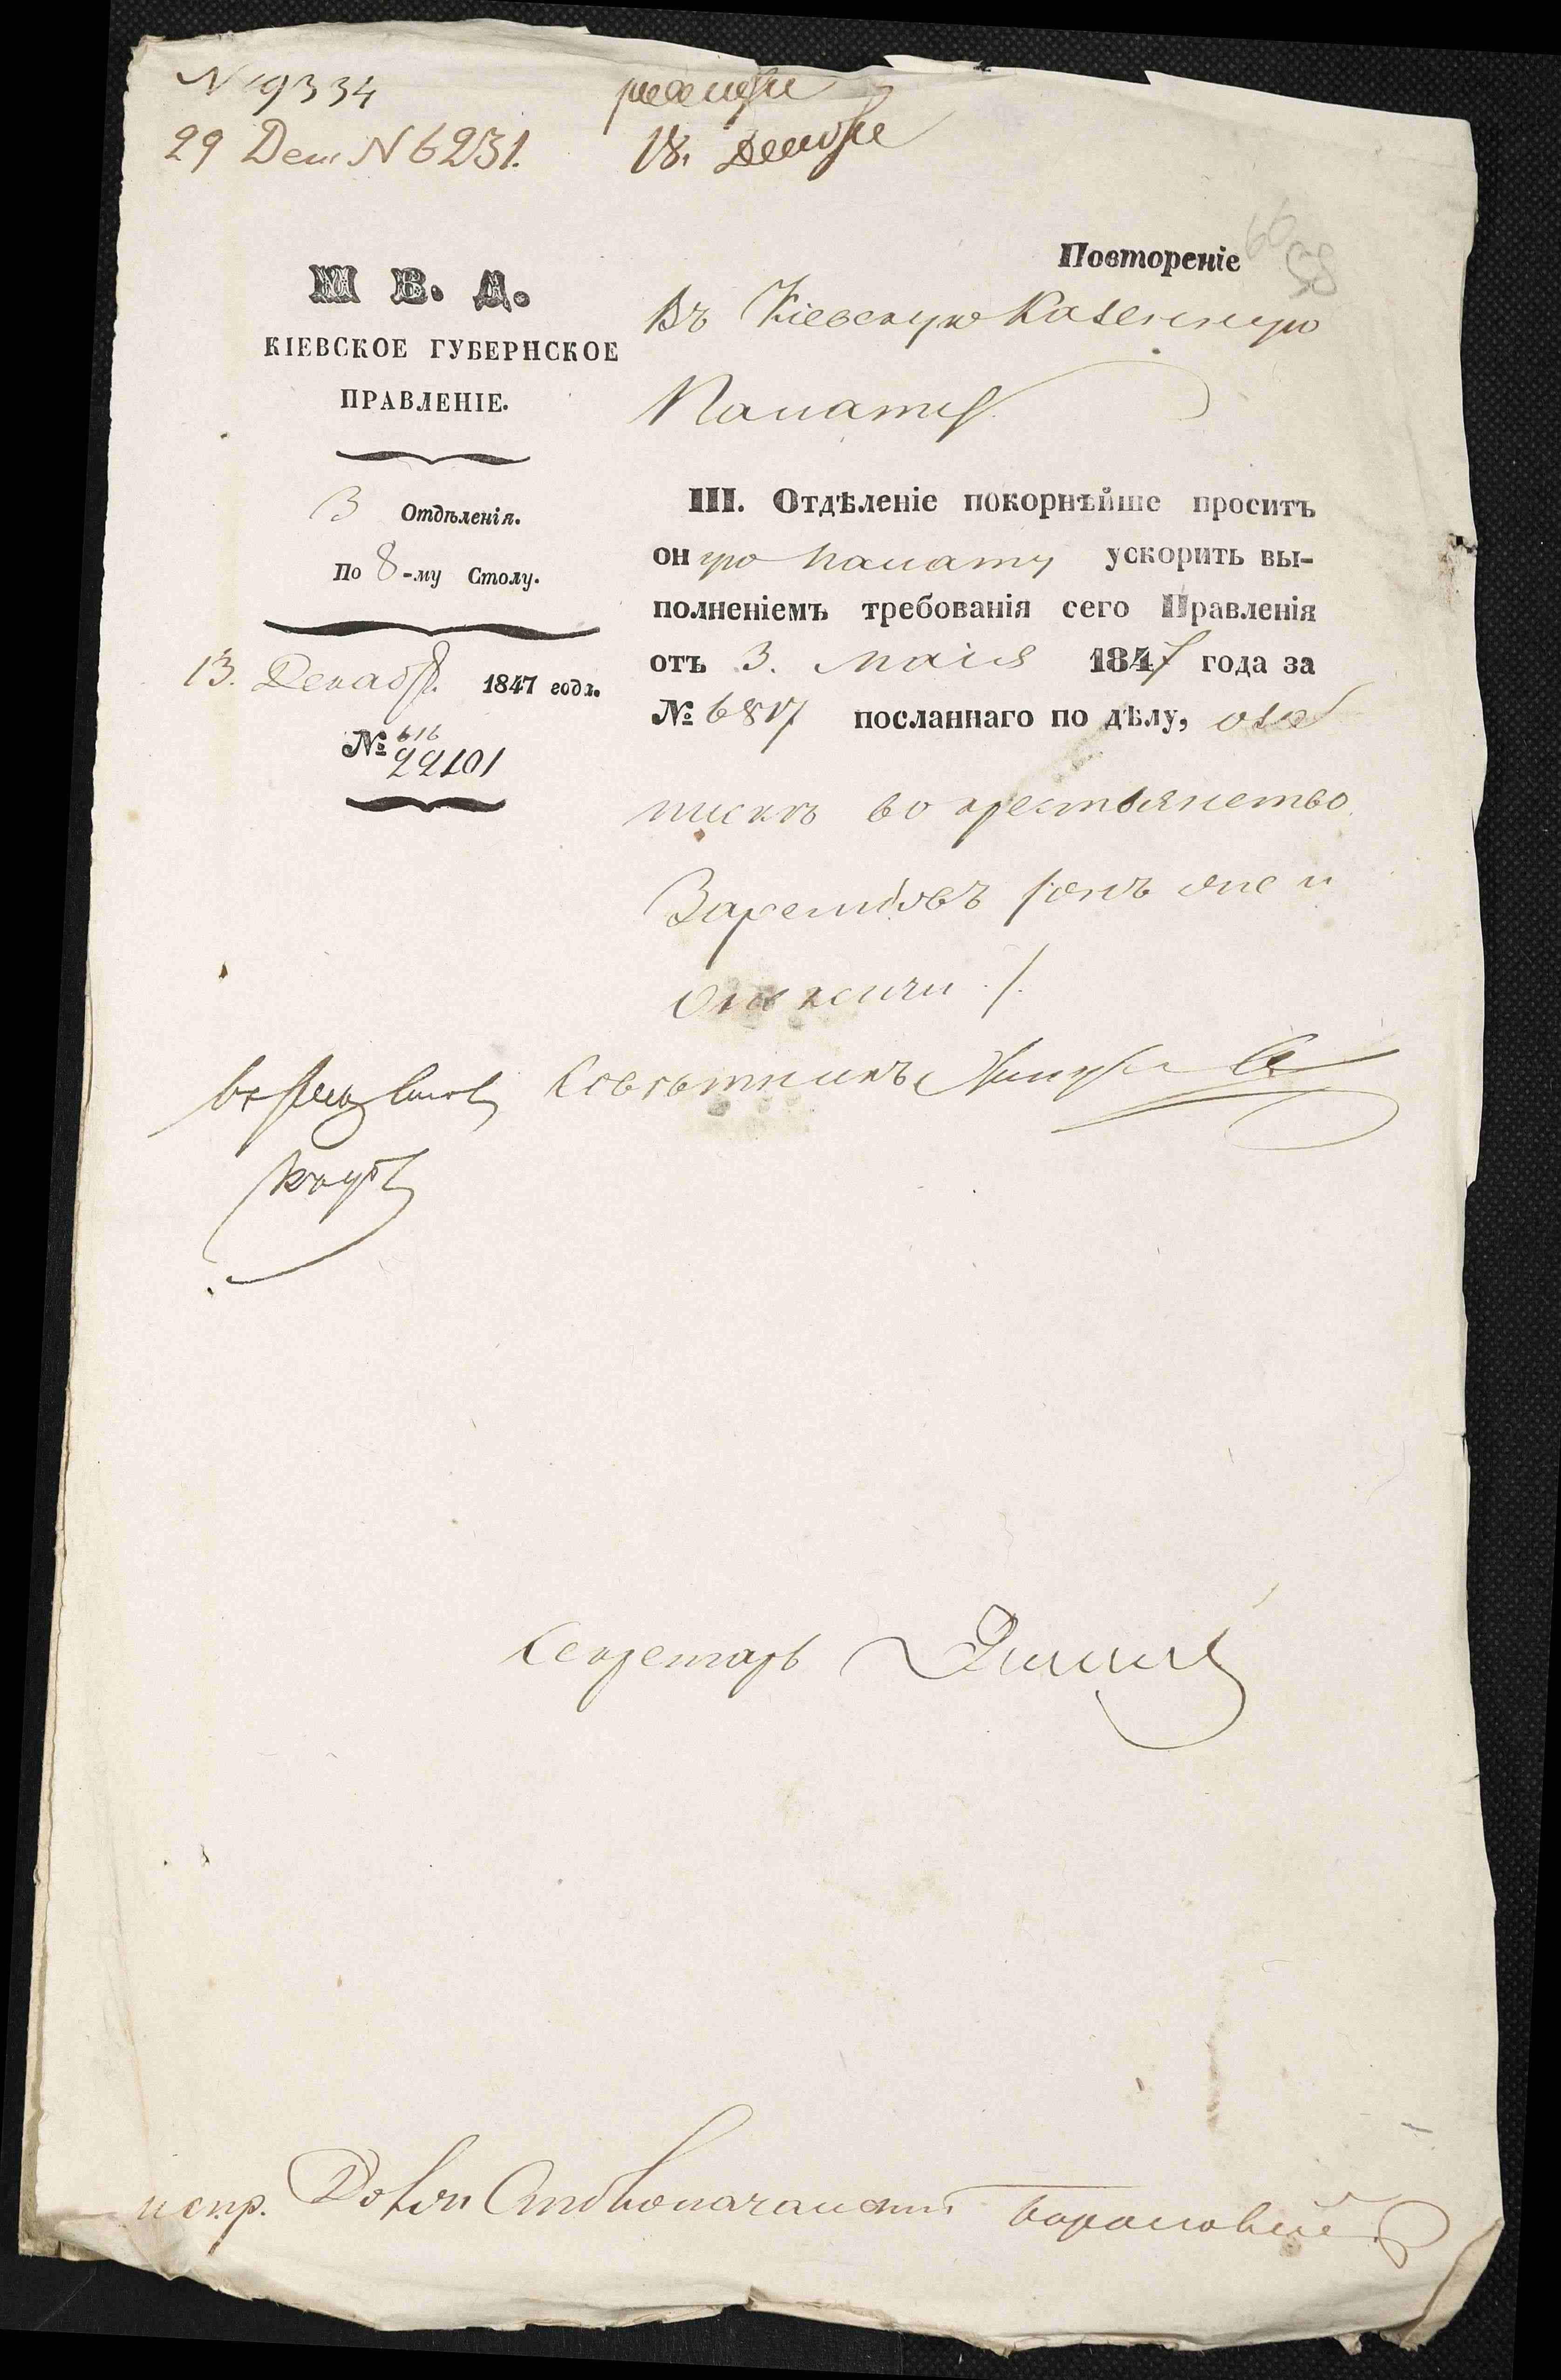 N 9334
29 Дек N 6231.
18. Декабр
Повтореніе
М В. Д.
КІЕВСКОЕ ГУБЕРНСКОЕ
ПРАВЛЕНІЕ.
3 Отдѣленія.
По 8-му Столу.
13. Декабр. 1847 года.
№ 616
22101
Въ Кіевскую Казенную
Палату.
III. Отдѣленіе покорнѣйше проситъ
он ую палату ускорить вы-
полненіемъ требованія сего Правленія
отъ 3. маія 1847 года за
№ 6817 посланнаго по дѣлу, оза
пискѣ во крестьянство
Зарембовъ онъ же и
Совѣтникъ
Секретарь
испр. Долж Столоначальник